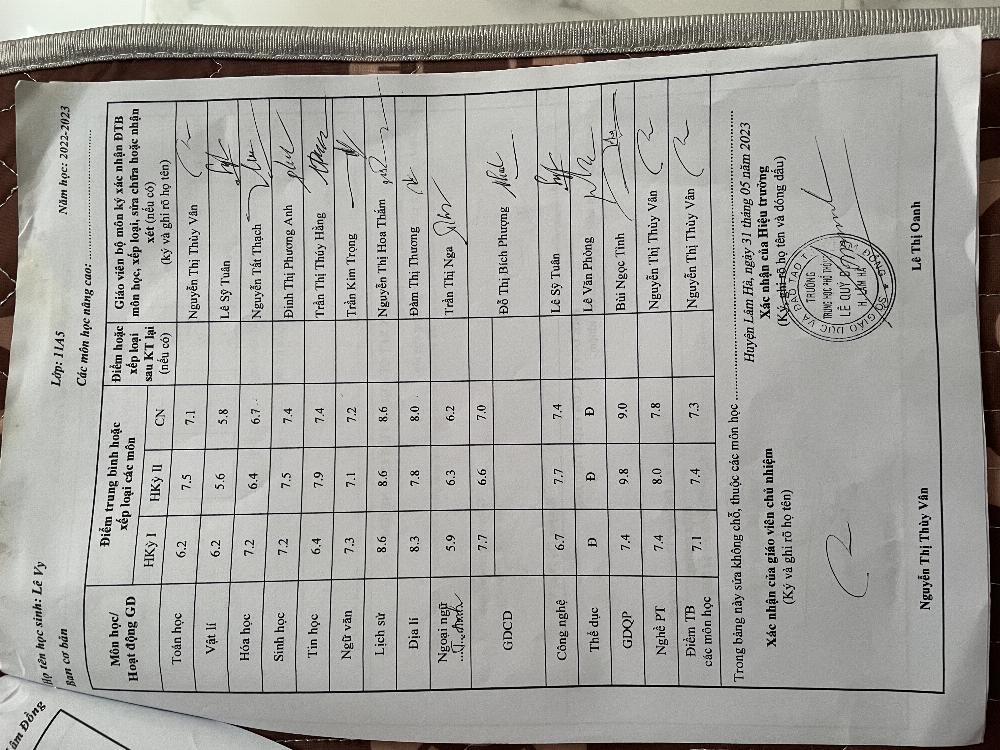 âm Đồng
Họ tên học sinh: Lê Vy Lớp: 11A5 Năm học: 2022-2023
Ban cơ bản Các môn học nâng cao: ..............
Môn học/ Hoạt động GD | Điểm trung bình hoặc xếp loại các môn | Điểm hoặc xếp loại sau KT lại (nếu có) | Giáo viên bộ môn ký xác nhận ĐTB môn học, xếp loại, sửa chữa hoặc nhận xét (nếu có) (ký và ghi rõ họ tên)
HKỳ I | HKỳ II | CN
Toán học | 6.2 | 7.5 | 7.1 | Nguyễn Thị Thùy Vân
Vật lí | 6.2 | 5.6 | 5.8 | Lê Sỹ Tuân
Hóa học | 7.2 | 6.4 | 6.7 | Nguyễn Tất Thạch
Sinh học | 7.2 | 7.5 | 7.4 | Đinh Thị Phương Anh
Tin học | 6.4 | 7.9 | 7.4 | Trần Thị Thúy Hằng
Ngữ văn | 7.3 | 7.1 | 7.2 | Trần Kim Trọng
Lịch sử | 8.6 | 8.6 | 8.6 | Nguyễn Thị Hoa Thắm
Địa lí | 8.3 | 7.8 | 8.0 | Đàm Thị Thương
Ngoại ngữ | 5.9 | 6.3 | 6.2 | Trần Thị Nga
GDCD | 7.7 | 6.6 | 7.0 | Đỗ Thị Bích Phượng
Công nghệ | 6.7 | 7.7 | 7.4 | Lê Sỹ Tuân
Thể dục | Đ | Đ | Đ | Lê Văn Phòng
GDQP | 7.4 | 9.8 | 9.0 | Bùi Ngọc Tinh
Nghề PT | 7.4 | 8.0 | 7.8 | Nguyễn Thị Thùy Vân
Điểm TB các môn học | 7.1 | 7.4 | 7.3 | Nguyễn Thị Thùy Vân
Trong bảng này sửa không chỗ, thuộc các môn học ..............
Huyện Lâm Hà, ngày 31 tháng 05 năm 2023
Xác nhận của giáo viên chủ nhiệm
(Ký và ghi rõ họ tên)
Xác nhận của Hiệu trưởng
(Ký, ghi rõ họ tên và đóng dấu)
SỞ GIÁO DỤC VÀ ĐÀO TẠO
TRƯỜNG
TRUNG HỌC PHỔ THÔNG
LÊ QUÝ Đ
H. LÂM HÀ
Nguyễn Thị Thùy Vân
Lê Thị Oanh